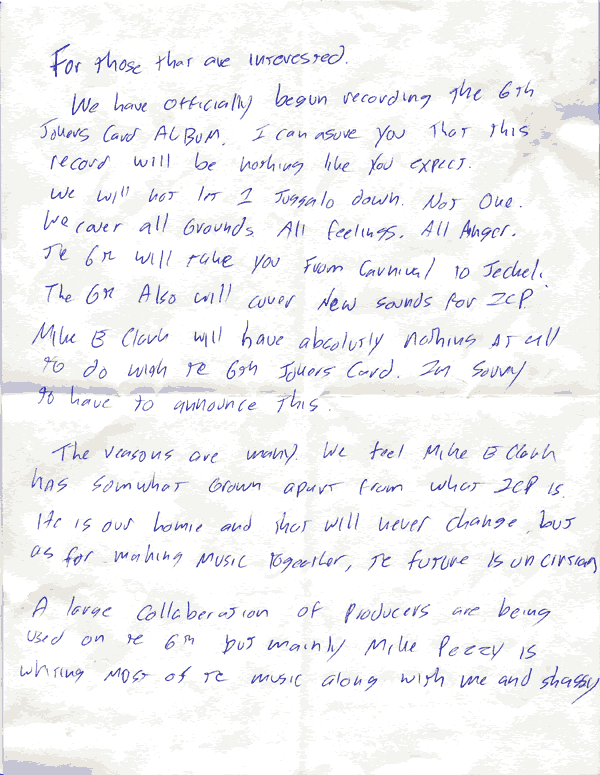 For those that are interested.
We have officially begun recording the 6th
Jokers Card ALBUM. I can asure you that this
record will be nothing like you expect.
We will not let 1 Juggalo down. Not One.
We cover all Grounds All feelings. All Anger.
Te 6th will take you From Carnival to Jeckel.
The 6th Also will cover New sounds for ICP.
Mike E Clark will have absolutly nothing AT all
to do with te 6th Jokers Card. Im Sorry
to have to announce This.
The reasons are many. We feel Mike E Clark
has somwhat Grown apart from what ICP is.
He is our homie and that will never change, but
as for making Music together, te future is uncirtian
A large Collaberation of Producers are being
used on te 6th but mainly Mike Pezzy is
whiting Most of te music along with me and shaggy